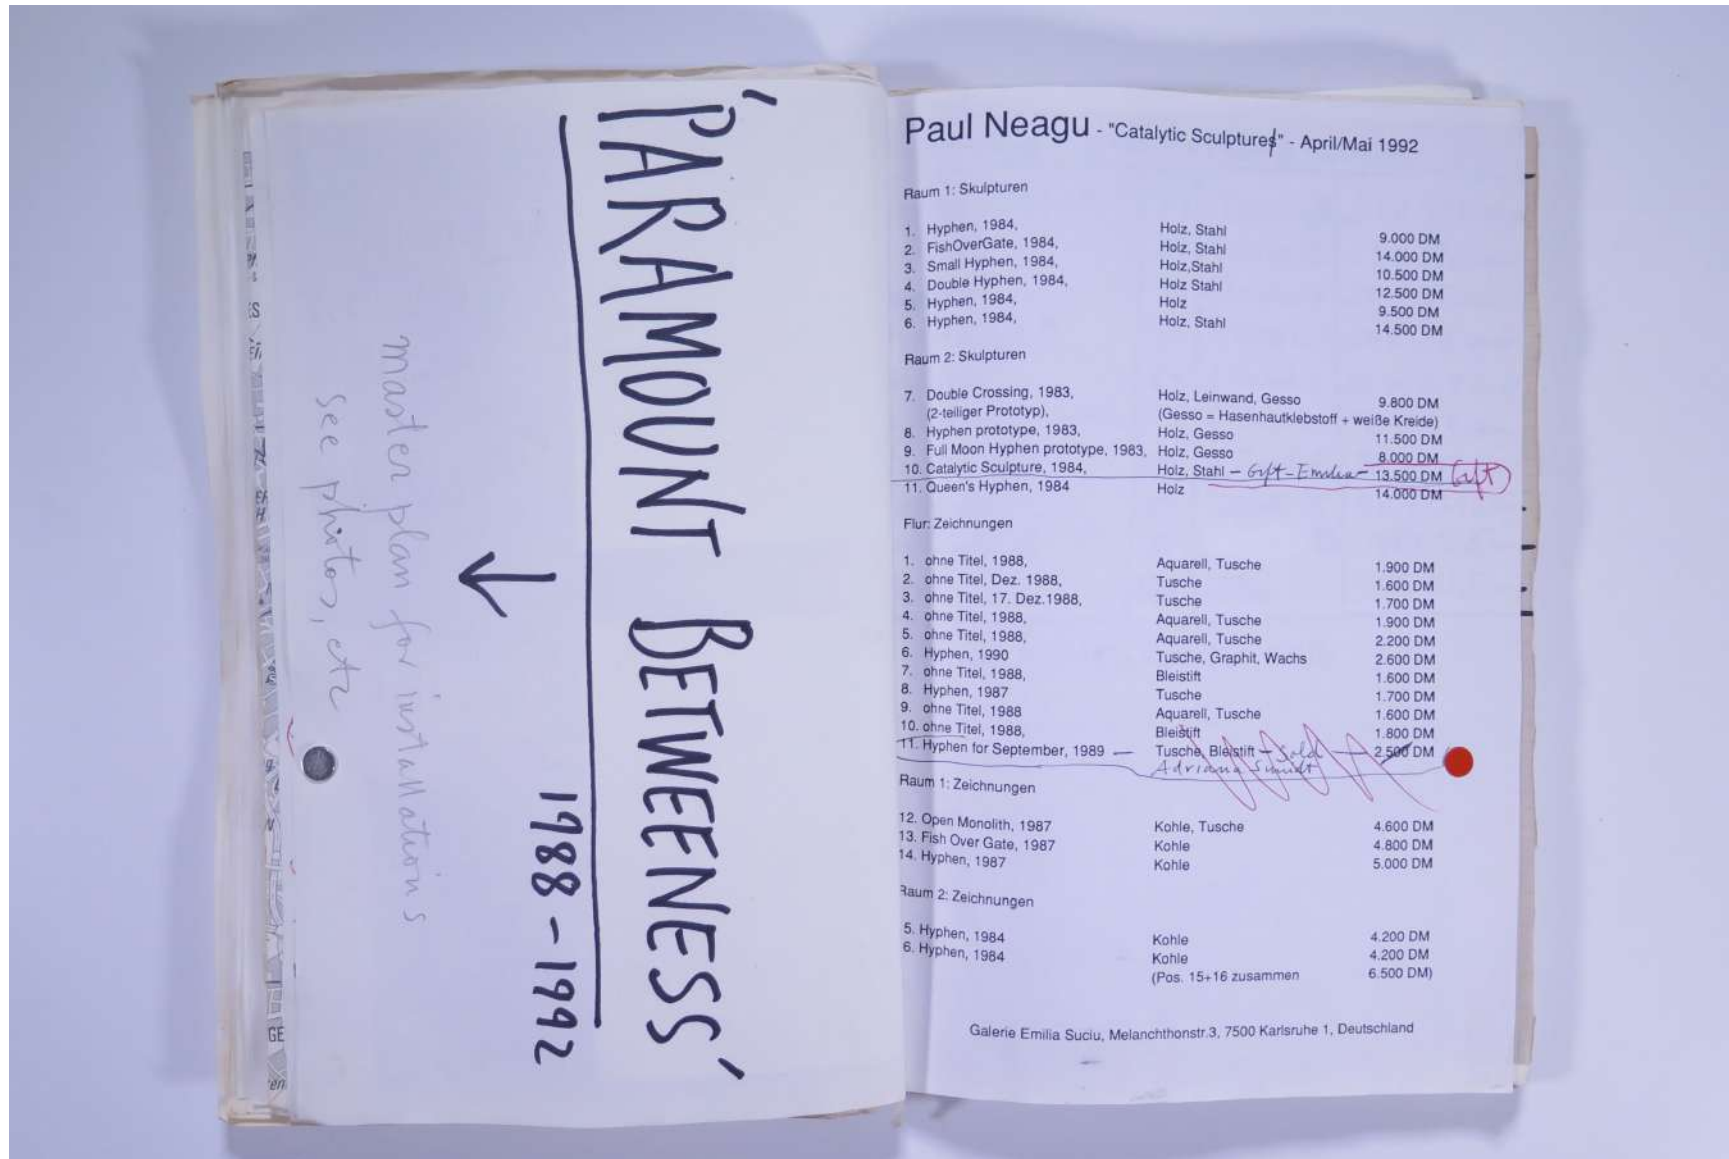 'PARAMOUNT BETWEENESS'
1988-1992
master plan for installations
see photos, etc
ES
GE
Paul Neagu - "Catalytic Sculptures" - April/Mai 1992
Raum 1: Skulpturen
1. Hyphen, 1984, Holz, Stahl 9.000 DM
2. FishOverGate, 1984, Holz, Stahl 14.000 DM
3. Small Hyphen, 1984, Holz,Stahl 10.500 DM
4. Double Hyphen, 1984, Holz Stahl 12.500 DM
5. Hyphen, 1984, Holz 9.500 DM
6. Hyphen, 1984, Holz, Stahl 14.500 DM
Raum 2: Skulpturen
7. Double Crossing, 1983, Holz, Leinwand, Gesso 9.800 DM
(2-teiliger Prototyp), (Gesso = Hasenhautklebstoff + weiße Kreide)
8. Hyphen prototype, 1983, Holz, Gesso 11.500 DM
9. Full Moon Hyphen prototype, 1983, Holz, Gesso 8.000 DM
10. Catalytic Sculpture, 1984, Holz, Stahl - Gift - Emilia - 13.500 DM (Gift)
11. Queen's Hyphen, 1984 Holz 14.000 DM
Flur: Zeichnungen
1. ohne Titel, 1988, Aquarell, Tusche 1.900 DM
2. ohne Titel, Dez. 1988, Tusche 1.600 DM
3. ohne Titel, 17. Dez.1988, Tusche 1.700 DM
4. ohne Titel, 1988, Aquarell, Tusche 1.900 DM
5. ohne Titel, 1988, Aquarell, Tusche 2.200 DM
6. Hyphen, 1990 Tusche, Graphit, Wachs 2.600 DM
7. ohne Titel, 1988, Bleistift 1.600 DM
8. Hyphen, 1987 Tusche 1.700 DM
9. ohne Titel, 1988 Aquarell, Tusche 1.600 DM
10. ohne Titel, 1988, Bleistift 1.800 DM
11. Hyphen for September, 1989 - Tusche, Bleistift - Sold - 2.500 DM
Adriana Smidt
Raum 1: Zeichnungen
12. Open Monolith, 1987 Kohle, Tusche 4.600 DM
13. Fish Over Gate, 1987 Kohle 4.800 DM
14. Hyphen, 1987 Kohle 5.000 DM
Raum 2: Zeichnungen
5. Hyphen, 1984 Kohle 4.200 DM
6. Hyphen, 1984 Kohle 4.200 DM
(Pos. 15+16 zusammen 6.500 DM)
Galerie Emilia Suciu, Melanchthonstr.3, 7500 Karlsruhe 1, Deutschland